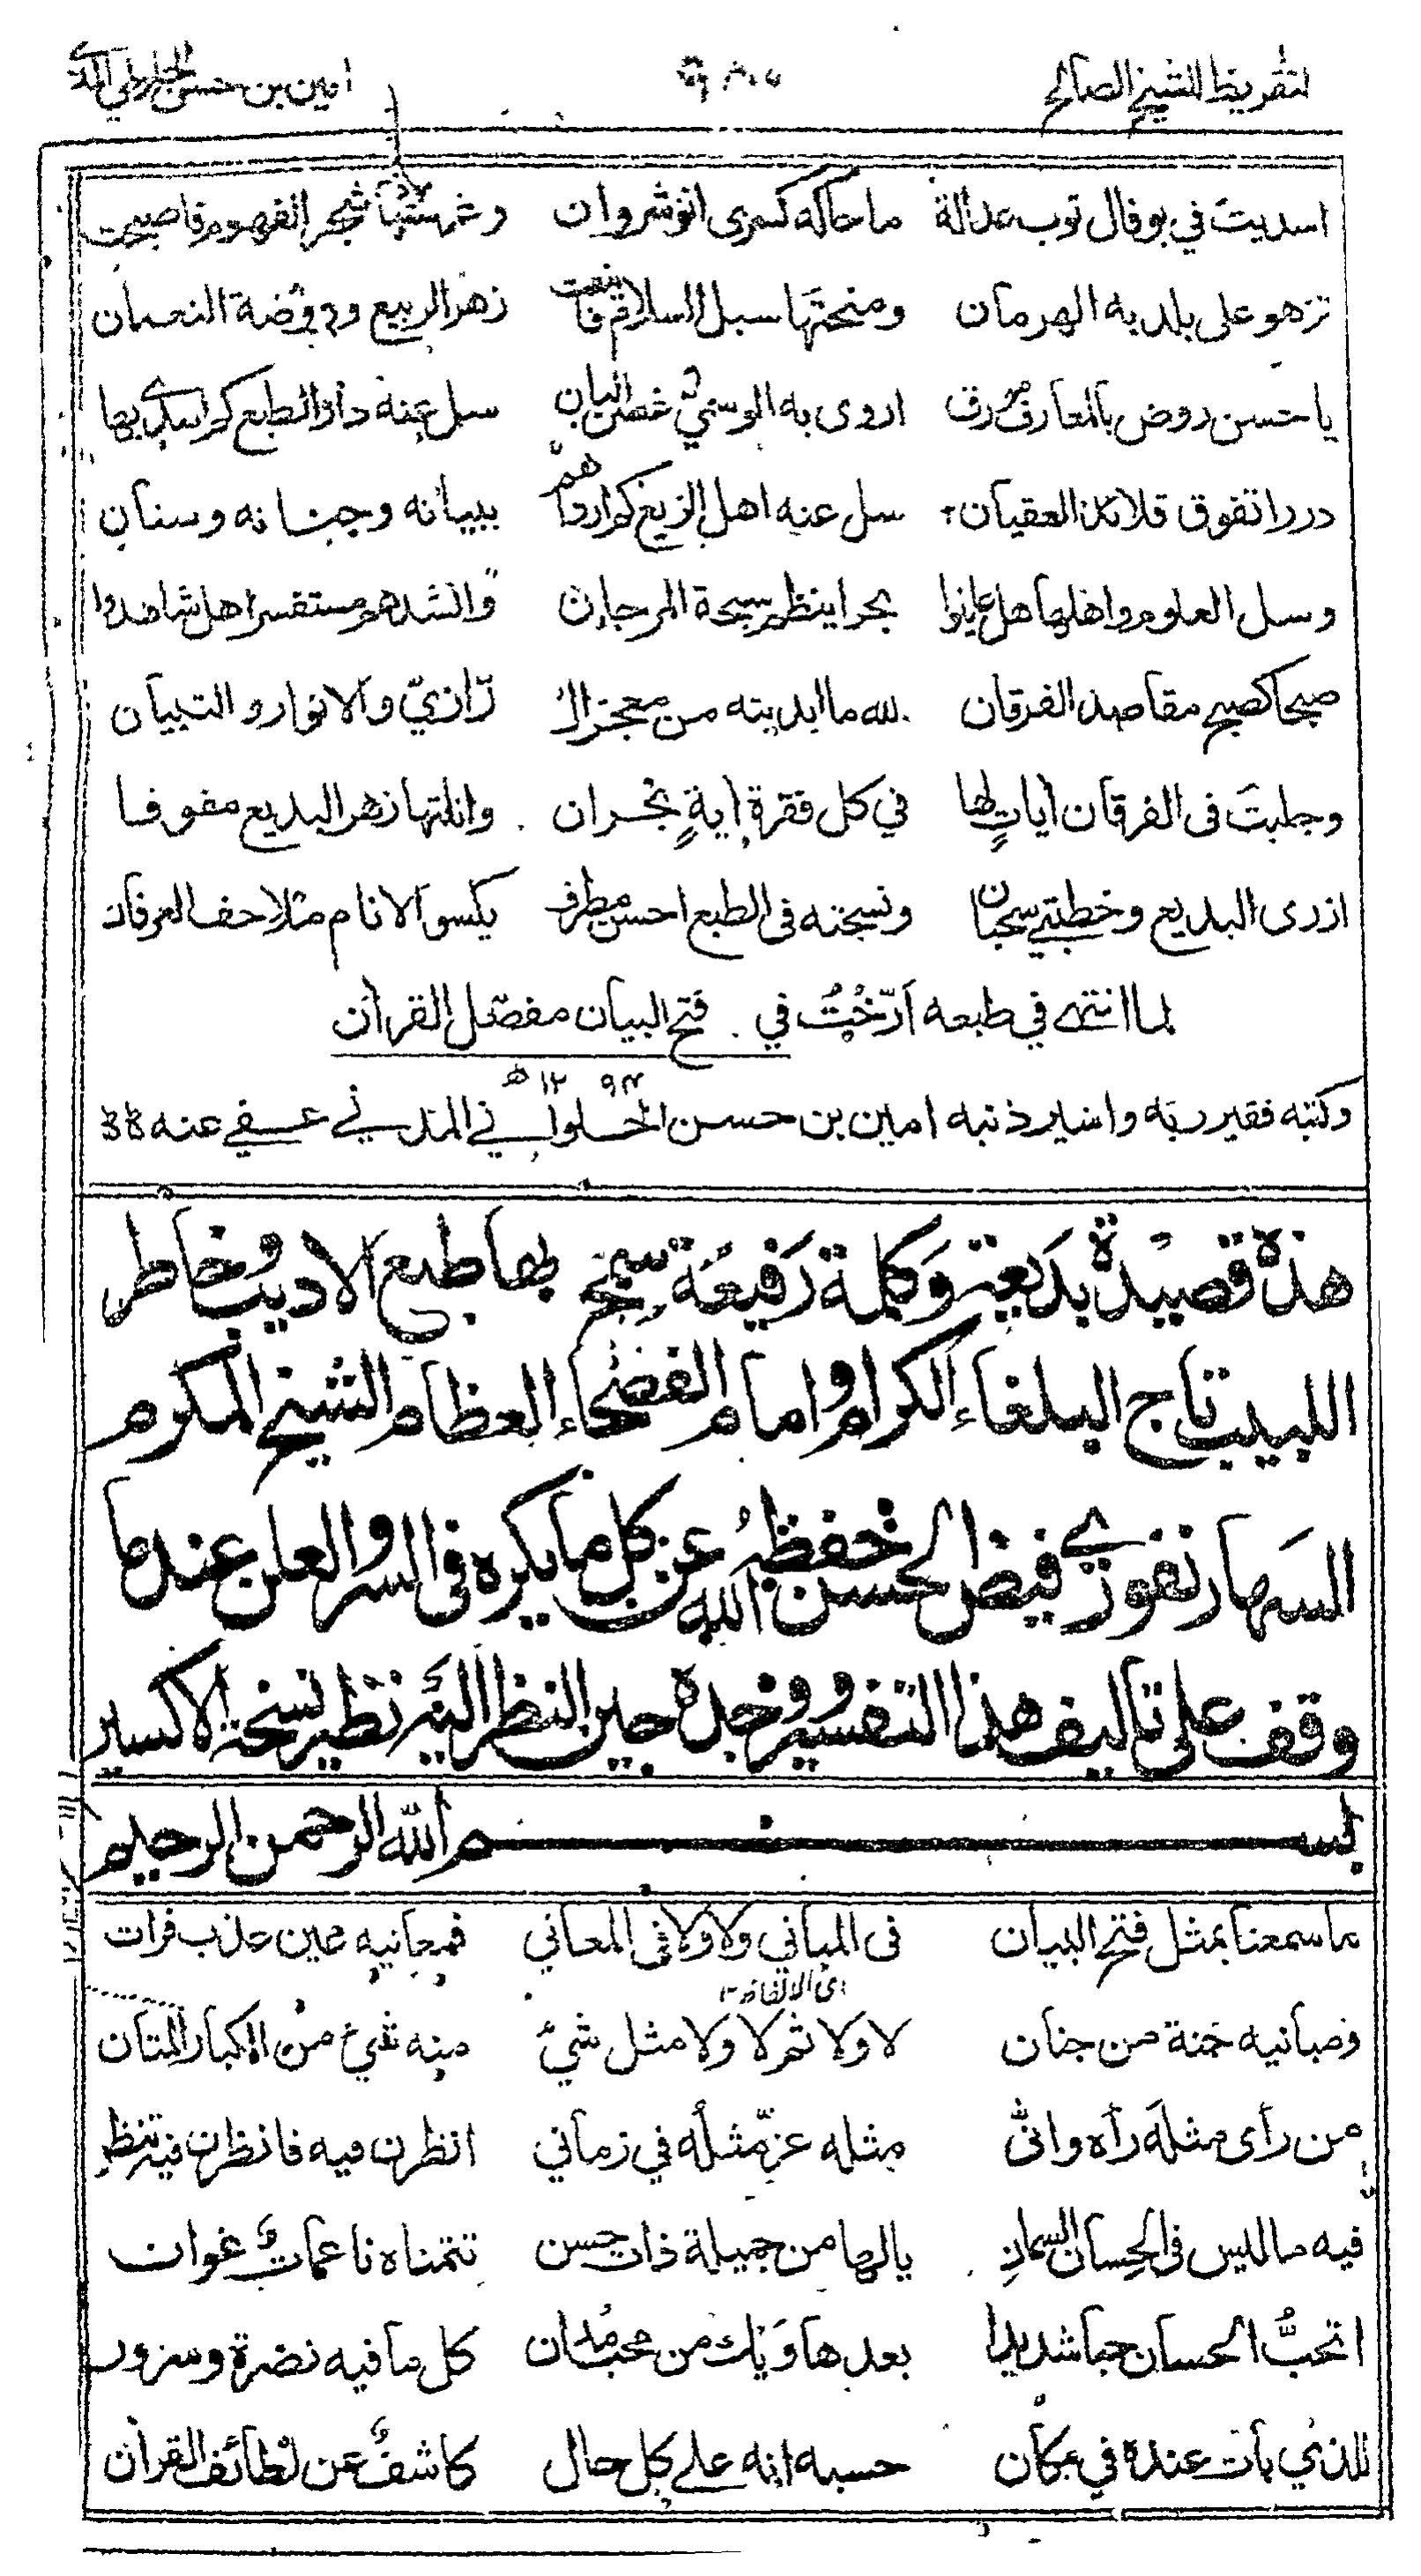 تقريظ الشيخ الصالح امين بن حسن الحلواني المدني
اسديت في بوفال ثوب عدالة ما حاكه كسرى انوشروان وغرستها شجر الفهوم فاصبحت
تزهو على بلديه الهرمان ومنحتها سبل السلام فاينعت زهر الربيع وروضة النعمان
يا حسن روض بالمعارف مورق اروى به الوسمي غصن البان سل عنه دار الطبع كم اسدى بها
دررا تفوق قلائد العقيان سل عنه اهل الزيغ كم ارداهم ببيانه وجنانه وسنان
وسل العلوم واهلها هل عاينوا بحرا ينظم سبحة المرجان وانشدهم مستفسرا هل شاهدوا
صبحا كصبح مقاصد الفرقان لله ما ابديته من معجز الـ رازيّ والانوار والتبيان
وجلبتَ فى الفرقان اياتٍ لها في كل فقرة ايةٍ بحران وانلتها زهر البديع مفوفا
ازرى البديع وخطبتي سحبان ونسجته فى الطبع احسن مطرف يكسو الانام ملاحف العرفان
لما انتهى في طبعه اَرّختُ في فتح البيان مفصّل القرآن
١٢٩٤ ھ
وكتبه فقير ربه واسير ذنبه امين بن حسن الحلواني المدني عفي عنه
هذه قصيدة بديعة وكلمة رفيعة سمح بها طبع الاديب وخاطر
اللبيب تاج البلغاء الكرام وامام الفصحاء العظام الشيخ المكرم
السهارنفوري فيض الحسن حفظه الله عن كل ما يكره فى السر والعلن عند ما
وقف على تاليف هذا التفسير ووجده حين النظر اليه نظير نسخة الاكسير
بسم الله الرحمن الرحيم
ما سمعنا بمثل فتح البيان فى المباني ولا ولا في المعاني فمعانيه معين عذب فرات
اى الالفاظ ١٢
ومبانيه جنة من جنان لا ولا ثم لا ولا مثل شيء منه شيء من الكبار المتان
من رأى مثلَه رآه وانىّ مثله عزّ مثلُه في زماني انظرن فيه فانظرن فيه تنظر
فيه ما ليس فى الحِسان السمانِ يا لها من جميلة ذات حسن تتمناه ناعمات غوان
اتحبُّ الحسان حبا شديدا بعدها وَيْك من محب مُدان كل ما فيه نضرة وسرور
للذي بات عنده في مكان حسبه انه على كل حال كاشفٌ عن لطائف القرآن